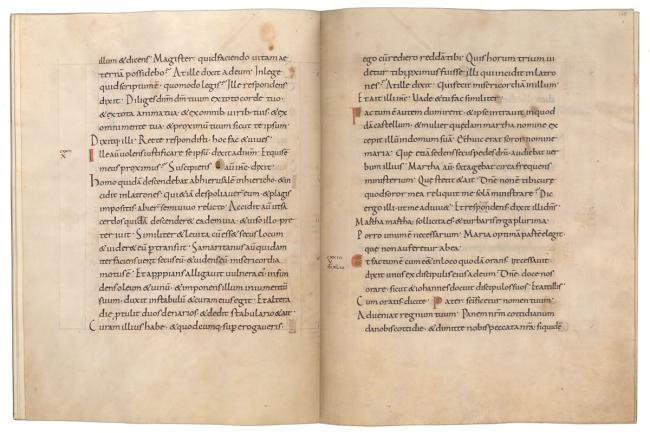 illum & dicens Magister quid faciendo uitam ae
ternā possidebo? At ille dixit ad eum In lege
quid scriptum ē quomodo legis? Ille respondens
dixit Diliges dn̄m dm̄ tuum ex toto corde tuo
& ex tota anima tua & ex omnib uirib tuis & ex
omni mente tua & proximū tuum sicut te ipsum
Dixitq illi Recte respondisti hoc fac & uiues
CXXI
X
Ille aū uolens iustificare se ipsū dixit ad ih̄m Et quis ē
meus proximus? Suscipiens aū ih̄s dixit
Homo quidā descendebat ab hierusalē in hiericho & in
cidit in latrones qui & iā despoliauer eum & plagis
impositis abier semiuiuo relicto Accidit aū ut sa
cerdos quidā descendere eadem uia & uiso illo prę
teriuit Similiter & leuita cū esse secus locum
& uider & eū ptransiit Samaritanus aū quidam
iter faciens uenit secus eū & uidens eū misericordia
motus ē Et appropians alligauit uulnera eī infun
dens oleum & uinū & imponens illum in iumentū
suum duxit in stabulū & curam eius egit Et altera
die ptulit duos denarios & dedit stabulario & ait
Curam illius habe & quodcumq supererogaueris
ego cū rediero reddā tibi Quis horum trium ui
detur tibi pximus fuisse illi qui incidit in latro
nes? At ille dixit Qui fecit misericordiā in illum
Et ait illi ih̄s Uade & tu fac similiter
Factum ē autem dum irent & ipse intrauit in quod
dā castellum & mulier quędam martha nomine ex
cepit illū in domum suā & huic erat soror nomine
maria Quę etiā sedens secus pedes dn̄i audiebat uer
bum illius Martha aū satagebat circa frequens
ministerium Quę stetit & ait Dn̄e non ē tibi curę
quod soror mea reliquit me solā ministrare? Dic
ergo illi ut me adiuu& Et respondens dixit illi dn̄s
Martha martha sollicita es & turbaris erga plurima
Porro unum ē necessarium Maria optimā partē elegit
quę non auferetur ab ea
CXXII
Et factum ē cum eēt in loco quodā orans ut cessauit
dixit unus ex discipulis eius ad eum Dn̄e doce nos
orare sicut & iohannes docuit discipulos suos Et ait illis
Cum oratis dicite Pater sc̄ificetur nomen tuum
Adueniat regnum tuum Panem nrm̄ cottidianum
da nobis cottidie & dimitte nobis peccata nr̄a siquidē